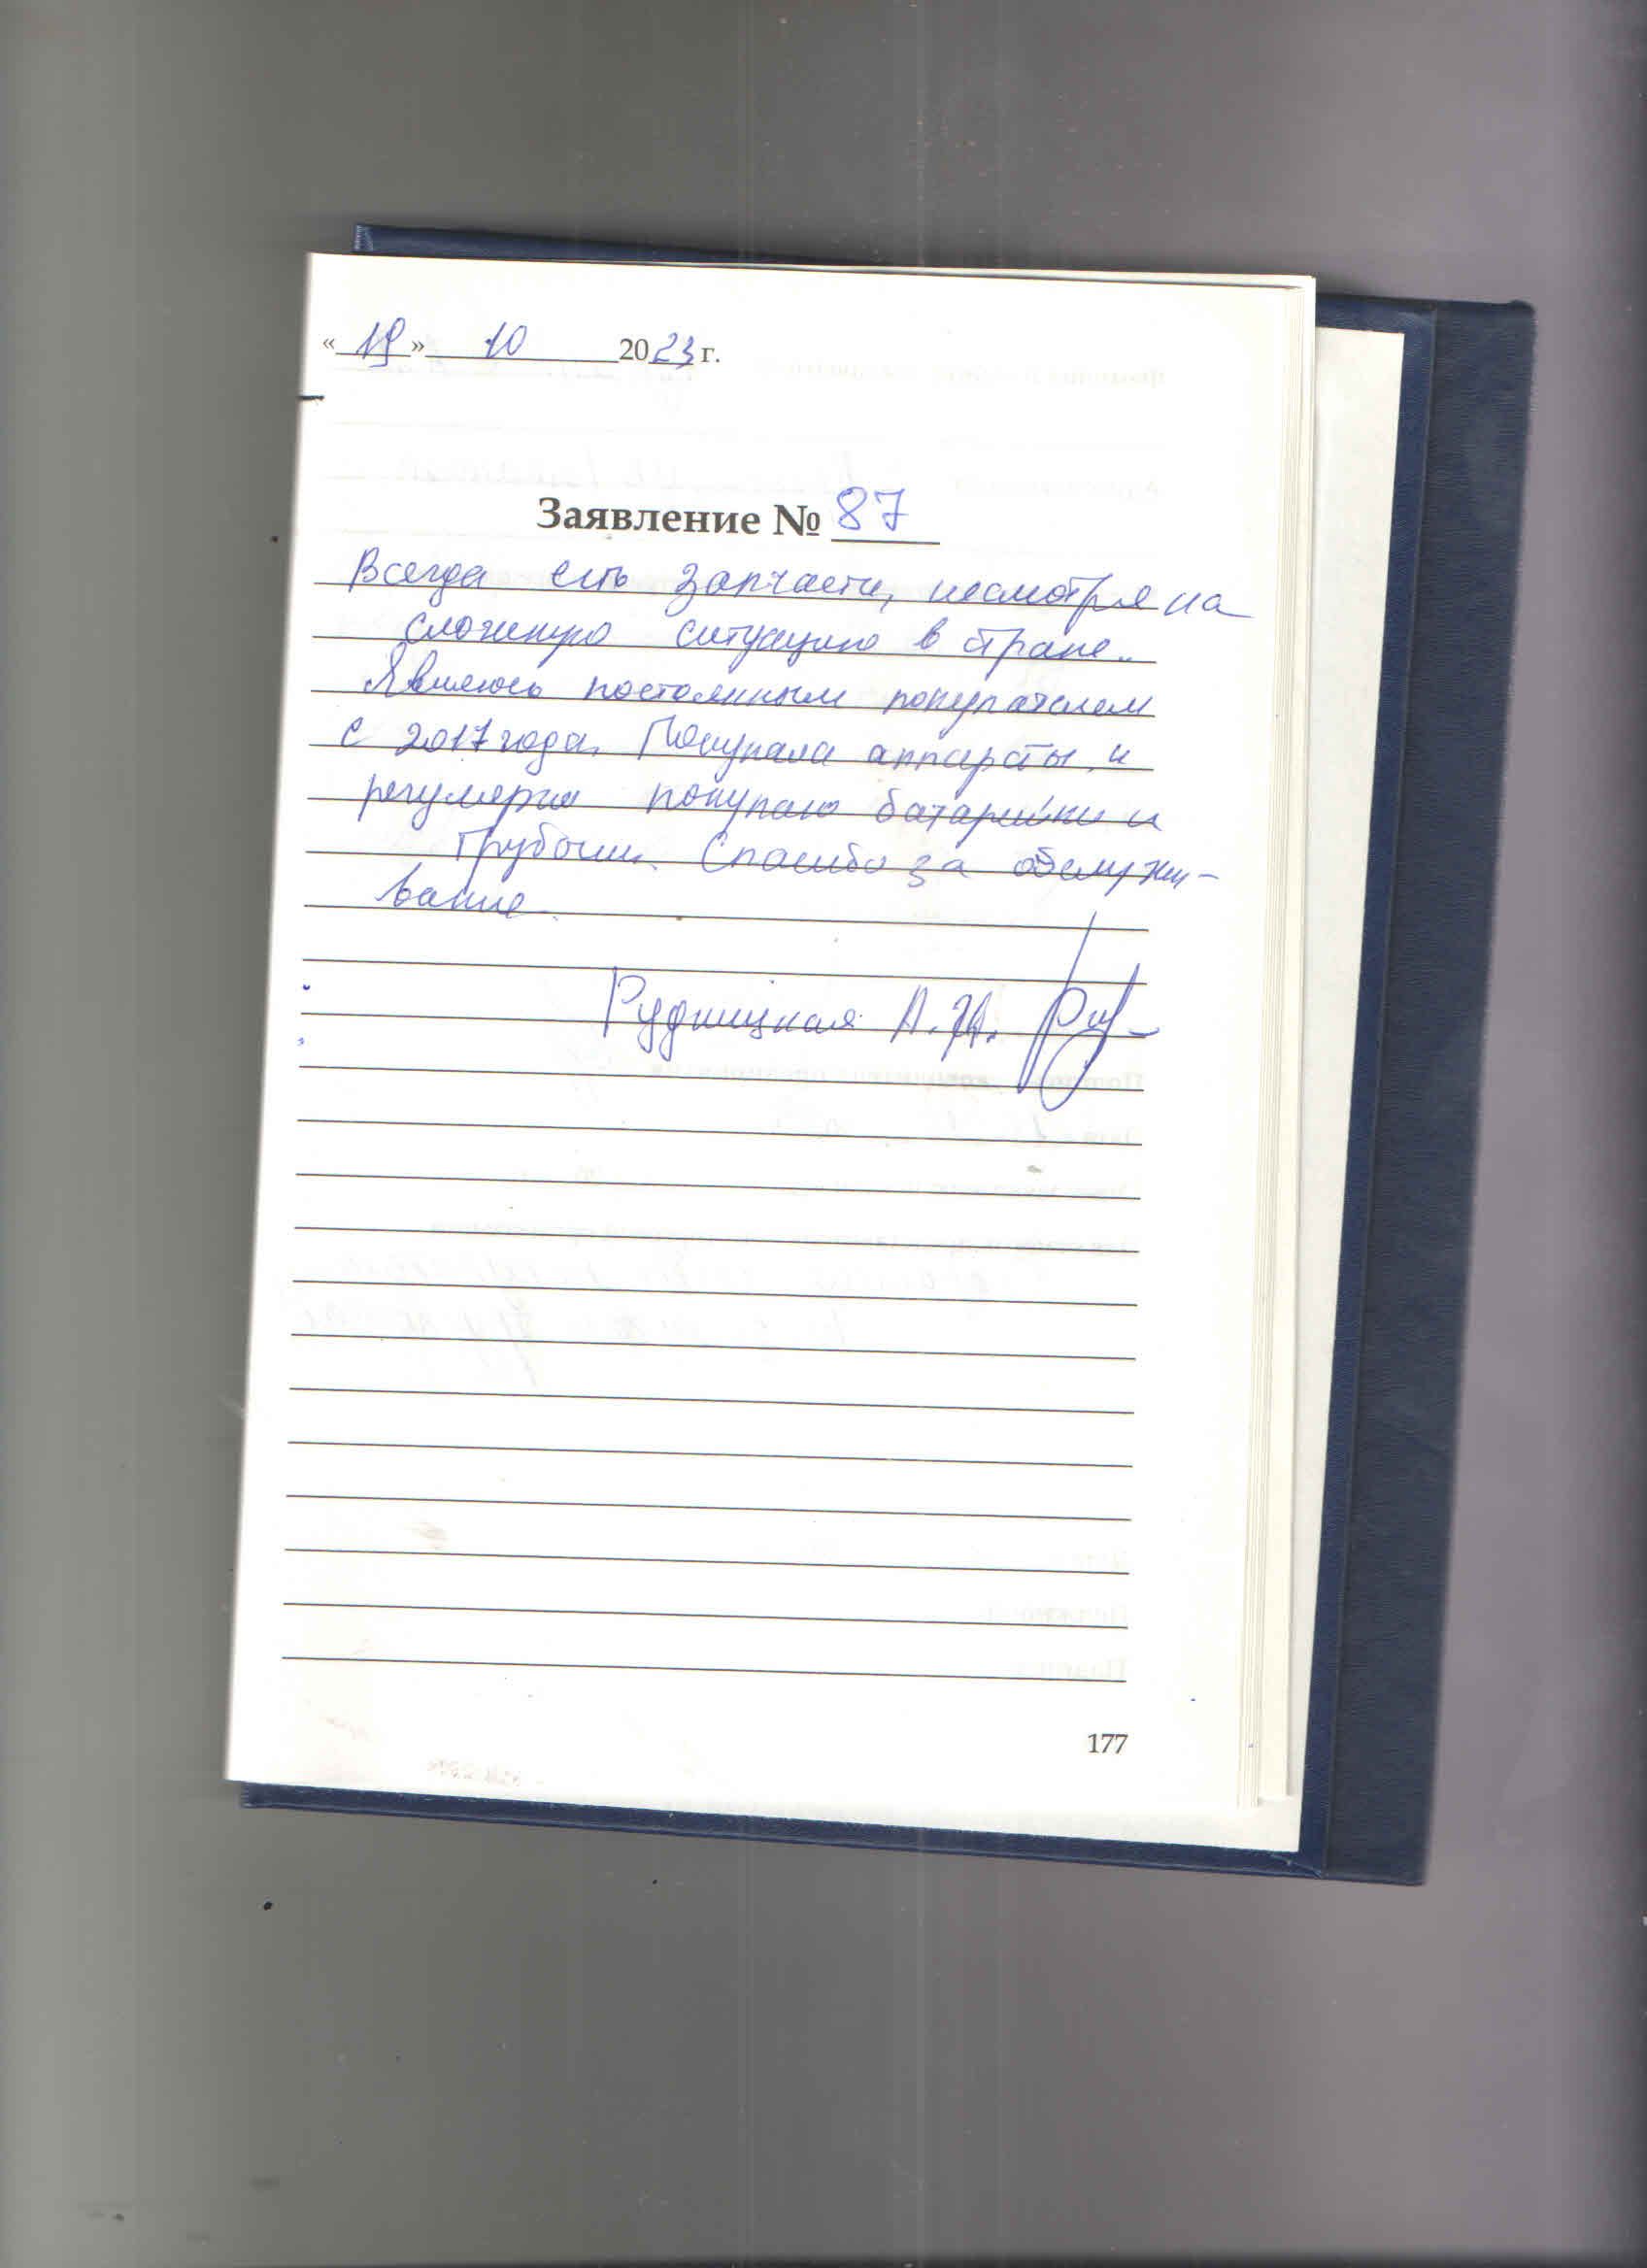 «19» 10 2023 г.
Заявление № 87
Всегда есть запчасти, несмотря на
сложную ситуацию в стране.
Являюсь постоянным покупателем
с 2017 года. Покупала аппараты, и
регулярно покупаю батарейки и
трубочки. Спасибо за обслужи-
вание.
Рудницкая А.
177